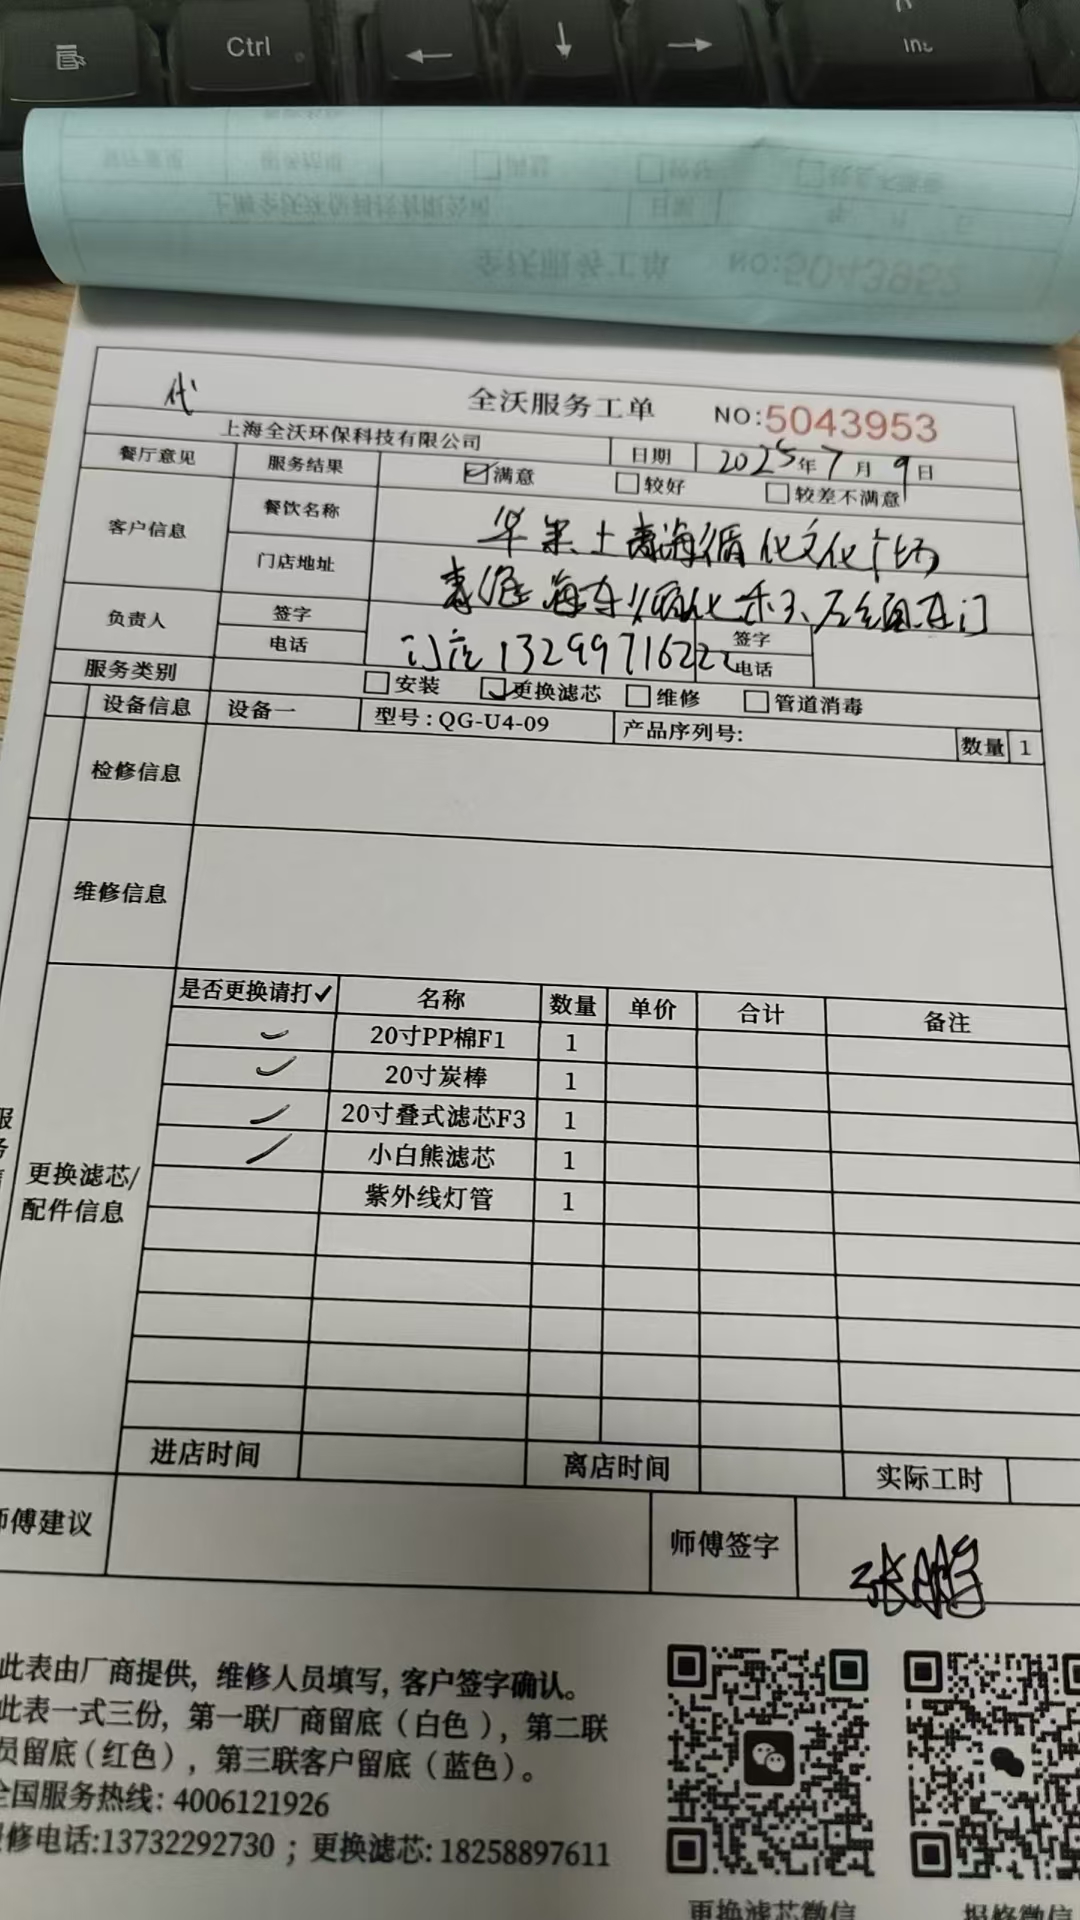 Ctrl
←
↓
→
Ins
代
全沃服务工单 NO:5043953
上海全沃环保科技有限公司 日期 2025年7月9日
餐厅意见 服务结果 满意 较好 较差不满意
客户信息 餐饮名称 华莱士青海循化文化广场
门店地址 青海海东循化
负责人 签字 签字
电话 门店13299716222 电话
服务类别 安装 更换滤芯 维修 管道消毒
设备信息 设备一 型号:QG-U4-09 产品序列号: 数量 1
检修信息
维修信息
是否更换请打✓ 名称 数量 单价 合计 备注
✓ 20寸PP棉F1 1
✓ 20寸炭棒 1
✓ 20寸叠式滤芯F3 1
✓ 小白熊滤芯 1
紫外线灯管 1
更换滤芯/
配件信息
进店时间 离店时间 实际工时
师傅建议 师傅签字 张鹏
此表由厂商提供,维修人员填写,客户签字确认。
此表一式三份,第一联厂商留底(白色),第二联
员留底(红色),第三联客户留底(蓝色)。
全国服务热线: 4006121926
修电话:13732292730 ; 更换滤芯: 18258897611
更换滤芯微信
报修微信